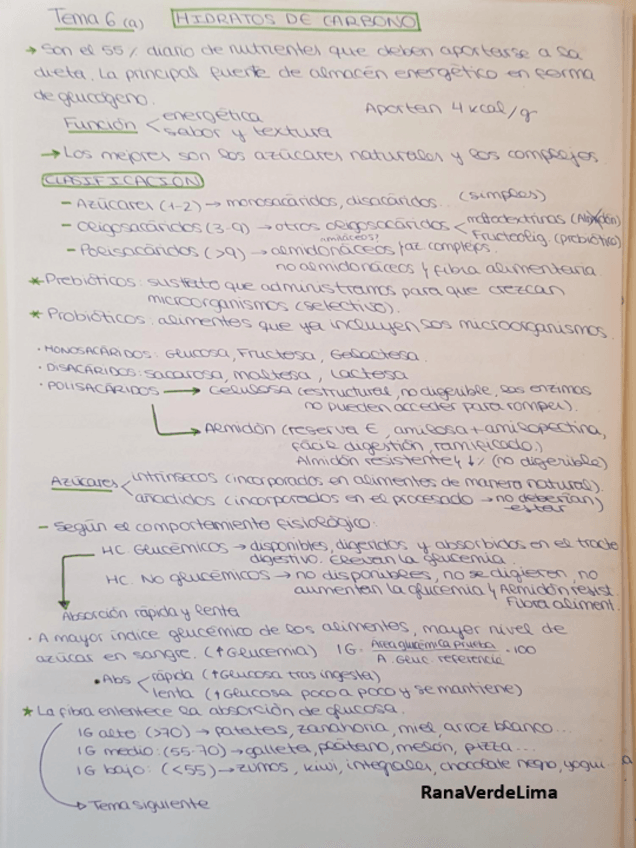 Tema 6 (a) HIDRATOS DE CARBONO
→ Son el 55% diario de nutrientes que deben aportarse a la
dieta. La principal fuente de almacén energético en forma
de glucógeno.
Aportan 4 kcal/g
Función < energética
sabor y textura
→ Los mejores son los azúcares naturales y los complejos.
CLASIFICACION
- Azúcares (1-2) → monosacáridos, disacáridos... (simples)
- Oligosacáridos (3-9) → otros oligosacáridos < maltodextrinas
Fructoolig. (prebiótico)
- Polisacáridos (>9) → almidonáceos / az. complejos.
no almidonáceos y fibra alimentaria
* Prebióticos: sustrato que administramos para que crezcan
microorganismos (selectivo).
* Probióticos: alimentos que ya incluyen los microorganismos.
· MONOSACÁRIDOS: Glucosa, Fructosa, Galactosa.
· DISACÁRIDOS: sacarosa, maltosa, Lactosa
· POLISACÁRIDOS → Celulosa (estructural, no digerible, las enzimas
no pueden acceder para romper).
→ Almidón (reserva E, amilosa + amilopectina,
fácil digestión, ramificado.)
Almidón resistente 4↓% (no digerible)
Azúcares < intrínsecos (incorporados en alimentos de manera natural).
añadidos (incorporados en el procesado → no deberían)
estar
- Según el comportamiento fisiológico:
HC. Glucémicos → disponibles, digeridos y absorbidos en el tracto
digestivo. Elevan la glucemia.
HC. No glucémicos → no disponibles, no se digieren, no
aumentan la glucemia y Almidón resist.
Fibra aliment.
Absorción rápida y lenta
· A mayor índice glucémico de los alimentos, mayor nivel de
azúcar en sangre. (↑Glucemia) IG = Área glucémica prueba / A. Gluc. referencia · 100
· Abs < rápida (↑Glucosa tras ingesta)
lenta (↑Glucosa poco a poco y se mantiene)
* La fibra enlentece la absorción de glucosa.
IG alto (>70) → patatas, zanahoria, miel, arroz blanco...
IG medio: (55-70) → galleta, plátano, melón, pizza...
IG bajo: (<55) → zumos, kiwi, integrales, chocolate negro, yogur
→ Tema siguiente
RanaVerdeLima